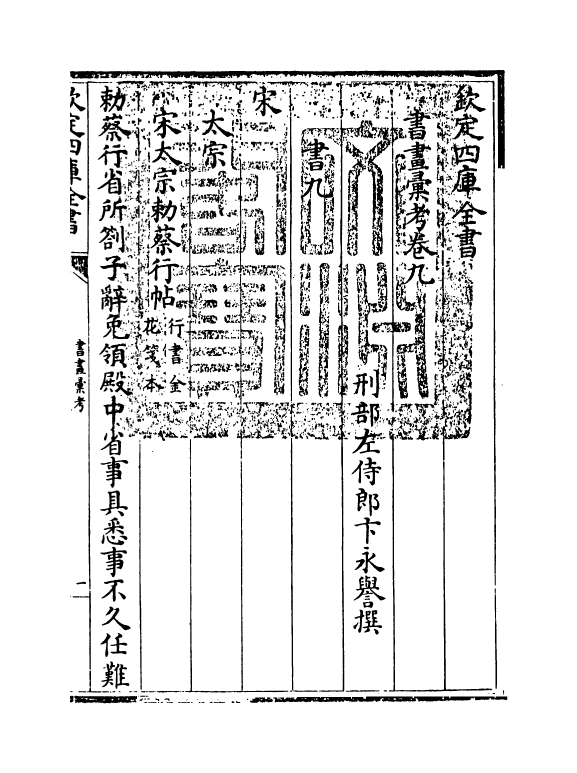 欽定四庫全書
書畫彙考卷九
刑部左侍郎卞永譽撰
書九
宋
太宗
宋太宗勅蔡行帖行書金
花箋本
勅蔡行省所劄子辭免領殿中省事具悉事不久任難
欽定四庫全書
書畫彙考
一